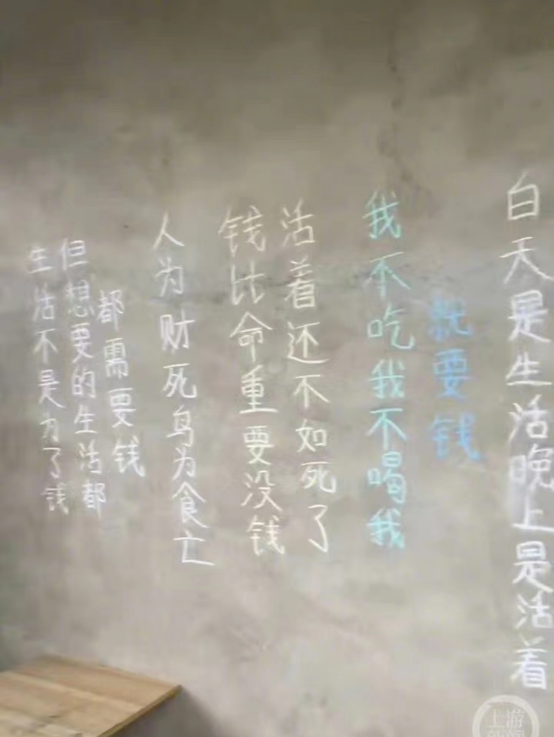 生活不是为了钱
但想要的生活都
都需要钱
人为财死鸟为食亡
钱比命重要没钱
活着还不如死了
我不吃我不喝我
就要钱
白天是生活晚上是活着
上游